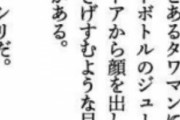 とあるタワマンに
ボトルのジュー
アから顔を出し
さげすむような
がある。
ンリだ。